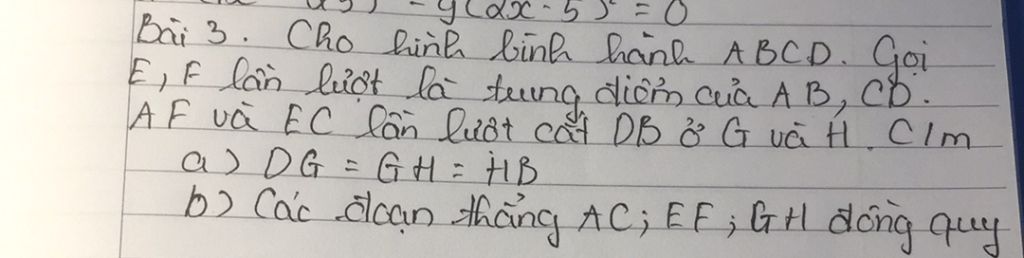 - y(2x - 5)² = 0
Bài 3. Cho hình bình hành ABCD. Gọi
E, F lần lượt là trung điểm của AB, CD.
AF và EC lần lượt cắt DB ở G và H. C/m
a) DG = GH = HB
b) Các đoạn thẳng AC; EF; GH đồng quy